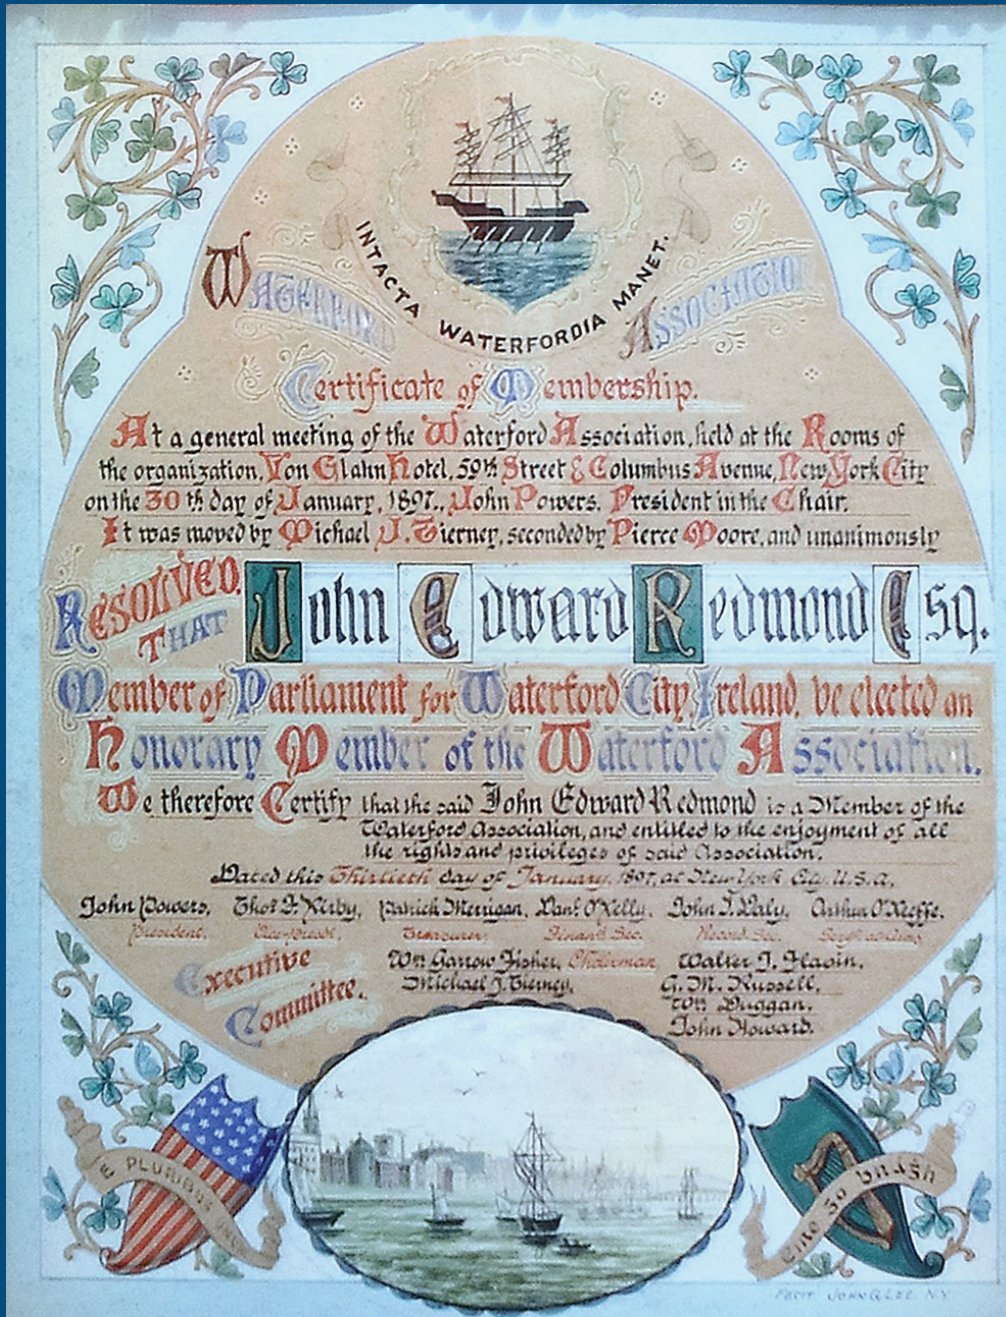 INTACTA WATERFORDIA MANET.
WATERFORD ASSOCIATION
Certificate of Membership.
At a general meeting of the Waterford Association, held at the Rooms of
the organization, Von Glahn Hotel, 59th Street & Columbus Avenue, New York City
on the 30th day of January, 1897., John Powers. President in the Chair.
It was moved by Michael J. Tierney, seconded by Pierce Moore, and unanimously
RESOLVED.
THAT
John Edward Redmond Esq.
Member of Parliament for Waterford City, Ireland, be elected an
Honorary Member of the Waterford Association.
We therefore Certify that the said John Edward Redmond is a Member of the
Waterford Association, and entitled to the enjoyment of all
the rights and privileges of said Association.
Dated this Thirtieth day of January, 1897, at New York City. U.S.A.
John Powers, Thos. F. Kirby, Patrick Merrigan, Danl. O'Kelly, John J. Daly, Arthur O'Keeffe.
President, Vice-Presdt, Treasurer, Financl. Sec. Record. Sec.
Executive
Committee.
Wm Garrow Fisher, Chairman, Walter J. Flavin,
Michael J. Tierney, G. M. Russell,
Wm Duggan,
John Howard.
E PLURIBUS UNUM
Eire go bragh
Fecit JOHN G. LEE. N.Y